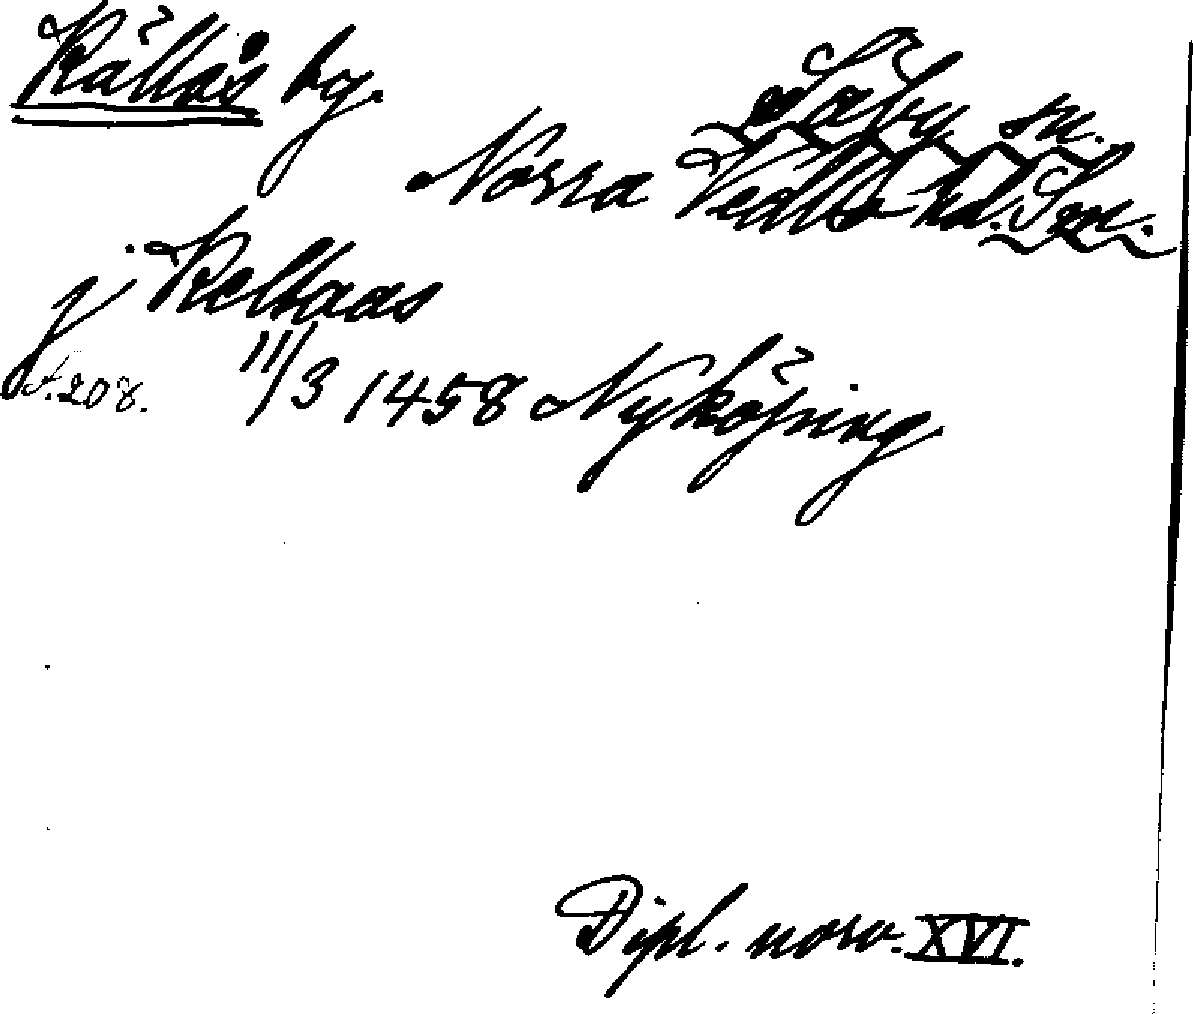 Källås by.
Säby sn.
Norra Vedbo hd. Sm.
j Keltaas
s. 208. 11/3 1458 Nyköping.
Dipl. norv. XVI.